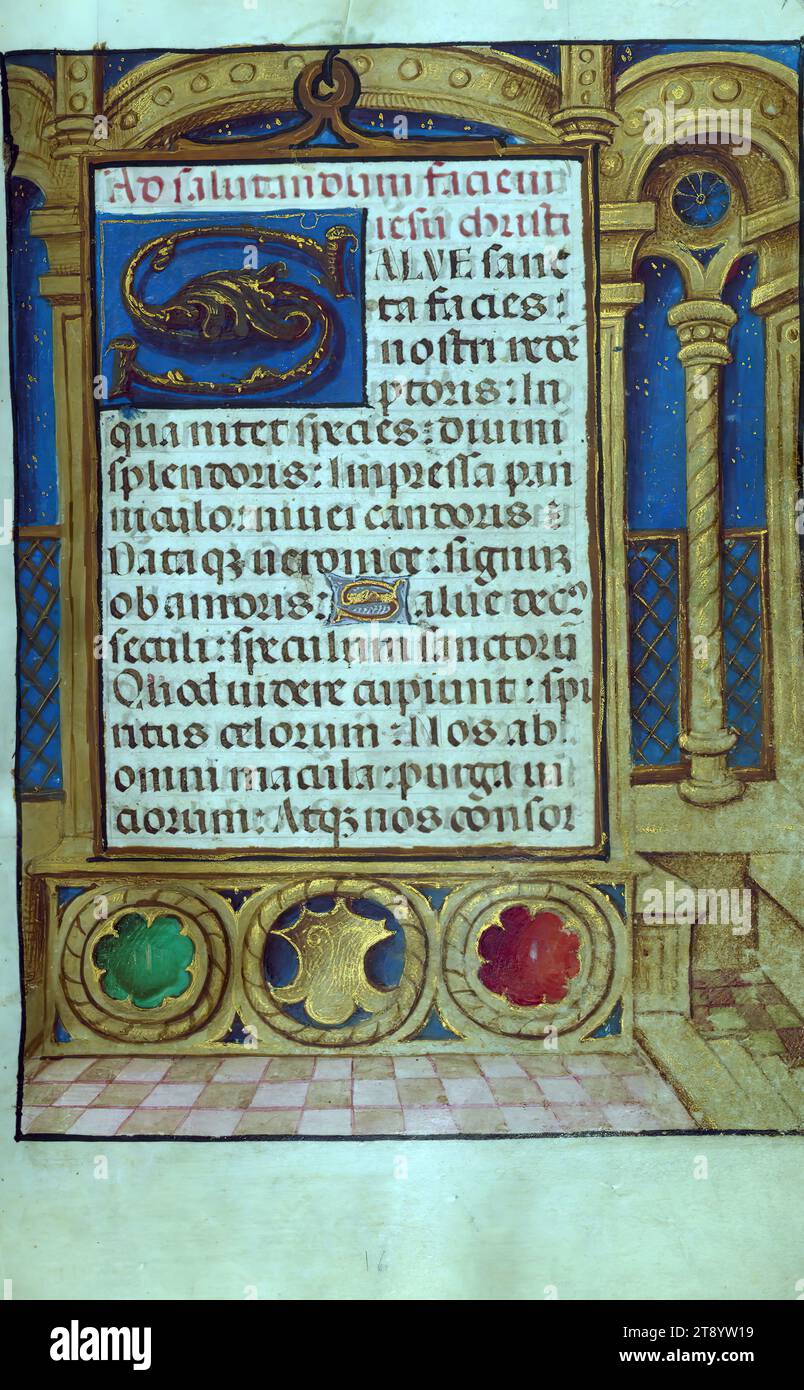 Ad salutandum faciem
iesu christi
SALVE sanc
ta facies:
nostri redē
ptoris: In
qua nitet species: diuini
splendoris: Impressa pan
niculo: niuei candoris:
Dataqꝫ ueronice: signuꝫ
ob amoris: Salue dec⁹
seculi: speculum sanctorū
Quod uidere cupiunt: spi
ritus celorum: Nos ab
omni macula: purga ui
ciorum: Atqꝫ nos consor
16
alamy
Image ID: 2T8YW19
www.alamy.com